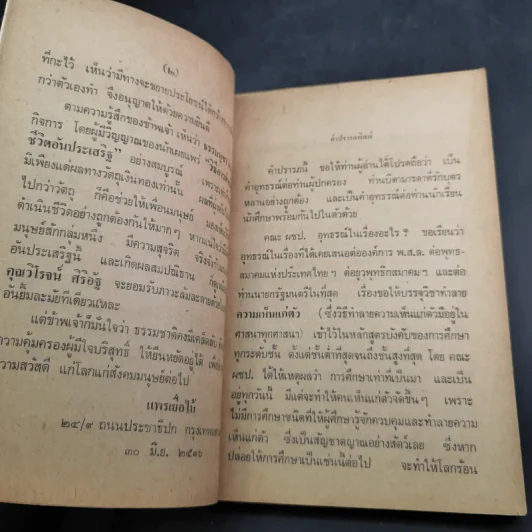 (๒)
ที่กะไว้ เห็นว่ามีทางจะขยายประโยชน์ให้กว้าง
กว่าตัวเองทำ จึงอนุญาตให้ด้วยความยินดี
ตามความรู้สึกของข้าพเจ้า เห็นว่า ธรรม
กิจการ โดยผู้มีวิญญาณของนักเผยแพร่
ชีวิตอันประเสริฐ" อย่างสมบูรณ์ เพราะ
มีเพียงแต่ผลทางวัตถุเงินทองเท่านั้น ผลที่
ไปกว่าวัตถุ ก็คือช่วยให้เพื่อนมนุษย์ มอง
ดำเนินชีวิตอย่างถูกต้องกันให้มากๆ หากแม้
มนุษย์สักกลุ่มหนึ่ง มีความสุจริต
อันประเสริฐนั้น และเกิดผลสมปณิธาน
คุณวิโรจน์ ศิริอัฐ จะยอมรับภาวะล้มละลาย
อันยิ้มละมัยทีเดียวแหละ
แต่ข้าพเจ้าก็มั่นใจว่า ธรรมชาติคงมีเคล็ดลับ
ความคุ้มครองผู้มีใจบริสุทธิ์ ให้ยืนหยัดอยู่ได้
ความสวัสดี แก่โลกแก่สังคมมนุษย์ต่อไป
แพรเยื่อไม้
๒๔/๙ ถนนประชาธิปก กรุงเทพ
๓๐ มิ.ย. ๒๕๑๖
คำปรารภ ขอให้ท่านผู้อ่านได้โปรดถือว่า เป็น
คำอุทธรณ์ต่อท่านผู้ปกครอง ท่านบิดามารดาที่รักบุตร
หลานอย่างถูกต้อง และเป็นคำอุทธรณ์ต่อท่านนักเรียน
นักศึกษาพร้อมกันไปในตัวด้วย
คณะ ผชป. อุทธรณ์ในเรื่องอะไร? ขอเรียนว่า
อุทธรณ์ในเรื่องที่ได้เคยเสนอต่อองค์การ พ.ส.ล. ต่อพุทธ-
สมาคมแห่งประเทศไทยฯ ต่อยุวพุทธิกสมาคมฯ และต่อ
ท่านนายกรัฐมนตรีในที่สุด เรื่องขอให้บรรจุวิชาทำลาย
ความเห็นแก่ตัว (ซึ่งวิธีทำลายความเห็นแก่ตัวมีอยู่ใน
ศาสนาทุกศาสนา) เข้าไว้ในหลักสูตรบังคับของการศึกษา
ทุกระดับชั้น ตั้งแต่ชั้นต่ำที่สุดจนถึงชั้นสูงที่สุด โดย คณะ
ผชป. ได้ให้เหตุผลว่า การศึกษาเท่าที่เป็นมา และเป็น
อยู่ทุกวันนี้ มีแต่จะทำให้คนเห็นแก่ตัวจัดขึ้นๆ เพราะ
ไม่มีการศึกษาชนิดที่ให้ผู้ศึกษารู้จักควบคุมและทำลายความ
เห็นแก่ตัว ซึ่งเป็นสัญชาตญาณอย่างสัตว์เลย ซึ่งหาก
ปลอยให้การศึกษาเป็นเช่นนี้ต่อไป จะทำให้โลกร้อน